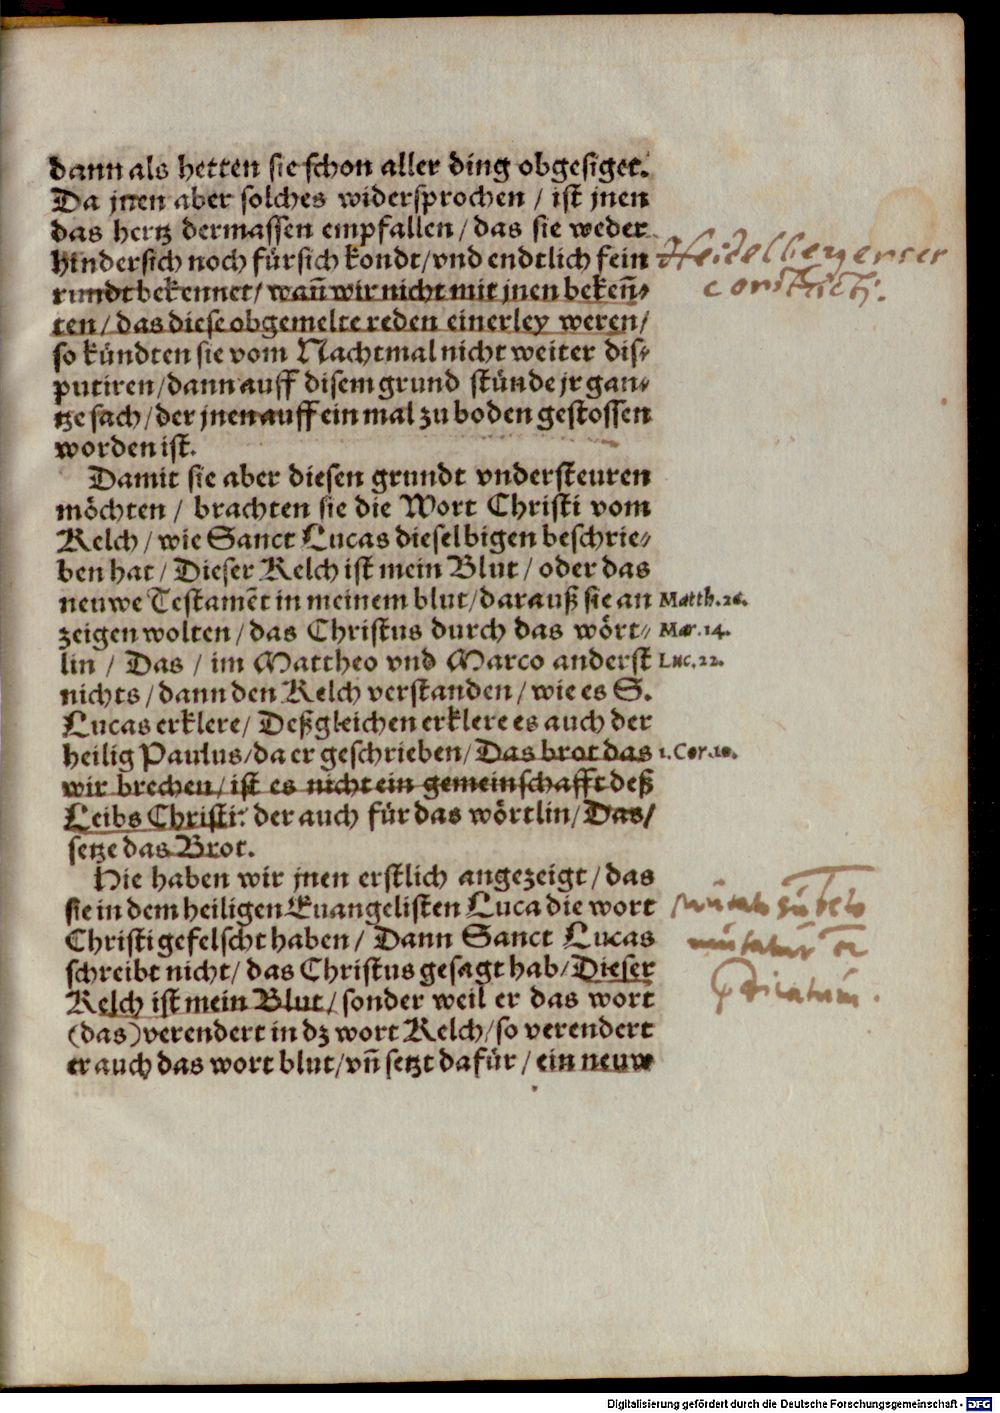 dann als hetten sie schon aller ding obgesiget.
Da jnen aber solches widersprochen / ist jnen
das hertz dermassen empfallen / das sie weder
hindersich noch fürsich kondt / vnd endtlich fein
rundt bekennet / wañ wir nicht mit jnen bekeñ⸗
ten / das diese obgemelte reden einerley weren /
so kündten sie vom Nachtmal nicht weiter dis⸗
putiren / dann auff disem grund stünde jr gan⸗
tze sach / der jnen auff ein mal zu boden gestossen
worden ist.
Damit sie aber diesen grundt vndersteuren
möchten / brachten sie die Wort Christi vom
Kelch / wie Sanct Lucas dieselbigen beschrie⸗
ben hat / Dieser Kelch ist mein Blut / oder das
neuwe Testamēt in meinem blut / darauß sie an
Matth. 26.
zeigen wolten / das Christus durch das wört⸗
Mar. 14.
lin / Das / im Mattheo vnd Marco anderst
Luc. 22.
nichts / dann den Kelch verstanden / wie es S.
Lucas erklere / Deßgleichen erklere es auch der
heilig Paulus / da er geschrieben / Das brot das
1. Cor. 10.
wir brechen / ist es nicht ein gemeinschafft deß
Leibs Christi: der auch für das wörtlin / Das /
setze das Brot.
Hie haben wir jnen erstlich angezeigt / das
sie in dem heiligen Euangelisten Luca die wort
Christi gefelscht haben / Dann Sanct Lucas
schreibt nicht / das Christus gesagt hab / Dieser
Kelch ist mein Blut / sonder weil er das wort
(das) verendert in dz wort Kelch / so verendert
er auch das wort blut / vñ setzt dafür / ein neuw
mutatur et
Digitalisierung gefördert durch die Deutsche Forschungsgemeinschaft - DFG